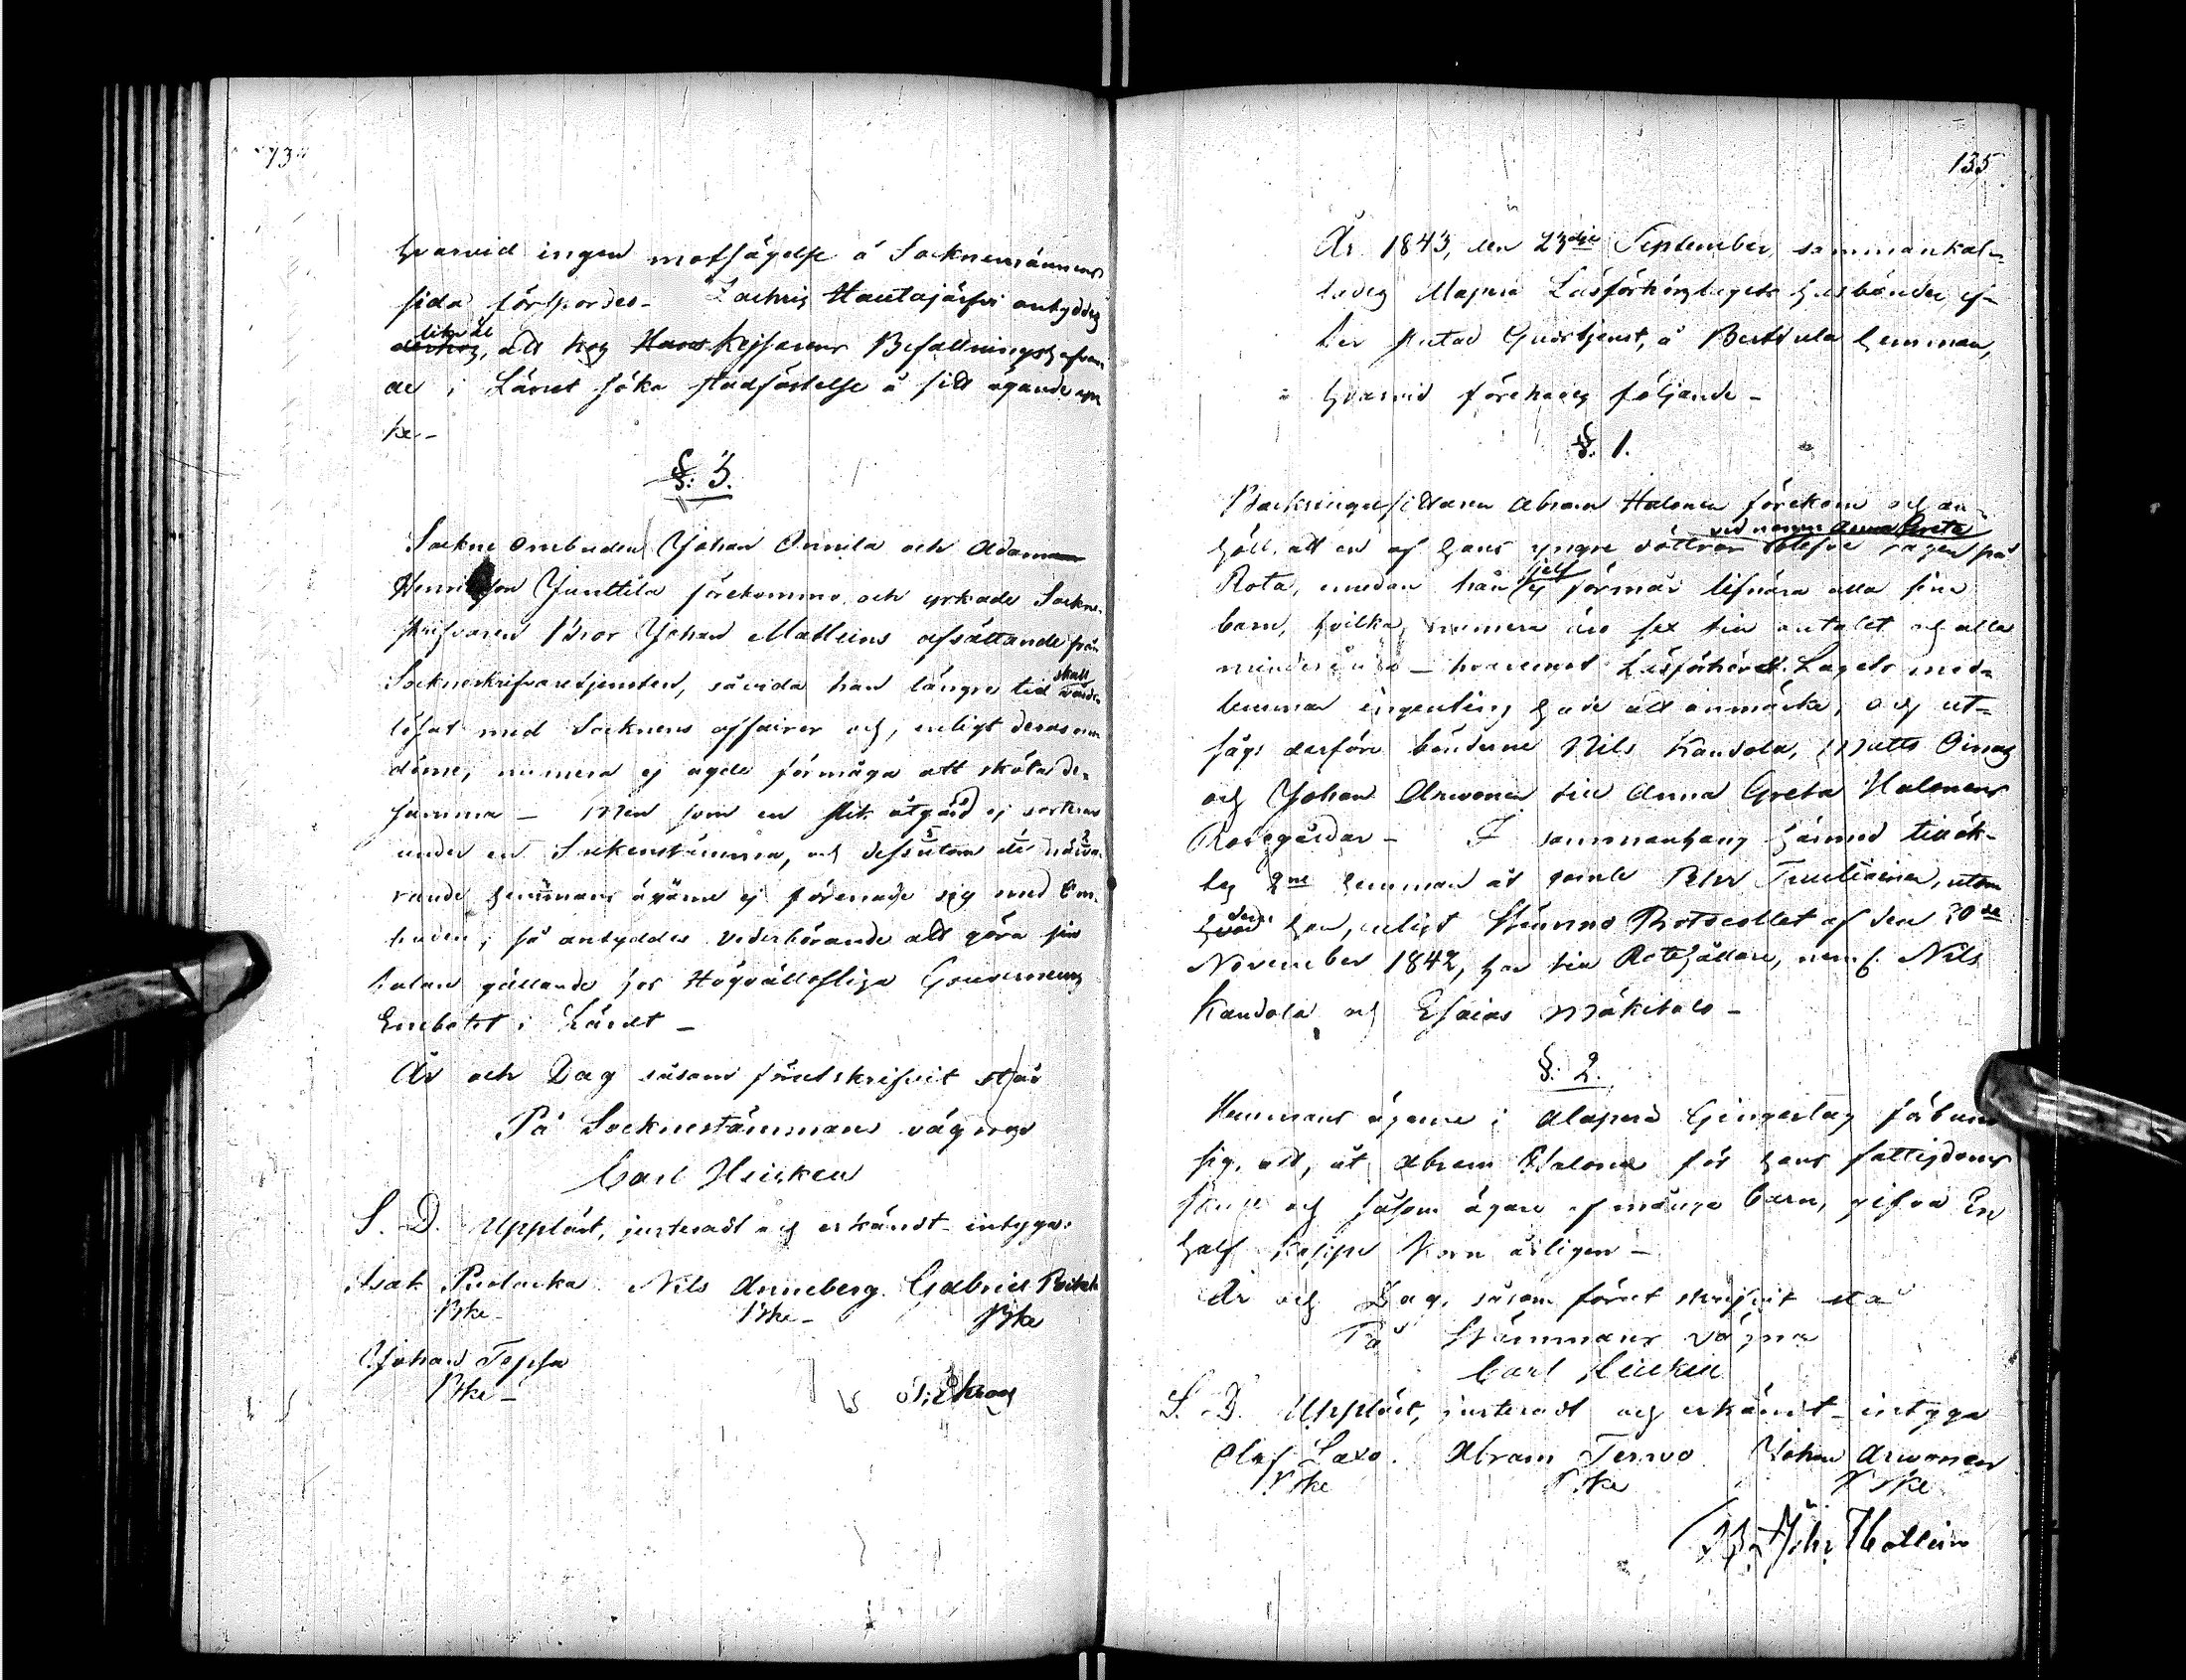 hvarvid ingen motsägelse å Socknemännens
sida förspordes – Zachris Hautajärfvi antyddes
likväl
derhos, att hos Hans Kejsarens Befallningshafvan
de i Länet söka stadfästelse å sitt ägande rä
§: 3.
Sockne Ombuden Johan Onnila och Adam
Henricsson Junttila förekommo och yrkade Sockne
skrifvaren Bror Johan Matleins afsättande från
skall
Socknskrifvaretjensten, såvida han längre tid
med Socknens affairer och, enligt deras om
döme, numera ej ägde förmåga att sköta de-
samma – Men som en slik åtgärd ej
under en Sockenstämma, och dessutom de närva-
rande hemmans ägarne ej förenade sig med Om-
buden, så antyddes vederbörande att göra sin
talan gällande hos Högvällofliga Gouvernements
Embetet i Länet –
År och Dag såsom förutskrifvit står
På Socknestämmans vägnar
Carl Heicken
S. D. Uppläst, justeradt och erkändt intyga:
Isak Nils Anneberg. Gabriel
Bmke Bmke Bmke
Johan Topsa
Bmke –
135
År 1843, den 23dje September, sammankal-
lades Alaperä Läsförhörslagets husbönder, ef-
ter slutad Gudstjenst, å Berttula hemman,
hvarvid förehades följande –
§. 1.
Backstugusittaren Abram Halonen förekom och an-
vid namn Anna Greta
höll, att en af hans yngre döttrar blefve tagen på
sjelf
Rota, emedan han ej förmår lifnära alla sina
barn, hvilka numera äro sex till antalet och alla
minderåriga – hvaremot Läsförhörs Lagets med-
lemmar ingenting hade att anmärka, och ut-
sågs derföre bönderne Nils Kandola, Matts Oinas
och Johan Arwonen till Anna Greta Halonens
Rotegårdar – I sammanhang härmed tillök-
tes 2ne hemman åt gamle Petter utom
dem
han, enligt Stämmo Protocollet af den 20de
November 1842, har till Rotehållare, neml. Nils
Kandola och Esaias Mäkitalo –
§. 2.
Hemmans ägarne i Alaperä Gingerlag förbundo
sig, att, åt Abram Halonen för hans fattigdoms
skull och såsom ägare af många barn, gifva En
half kappe Korn årligen –
År och Dag, såsom förut skrifvit står
På Stämmans vägnar
Carl Heicken
S. D. Uppläst, justeradt och erkändt – intyga
Olof Saxo. Abram Tervo Johan Arwonen
Bmke Bmke Bmke
Br Joh: Matlein